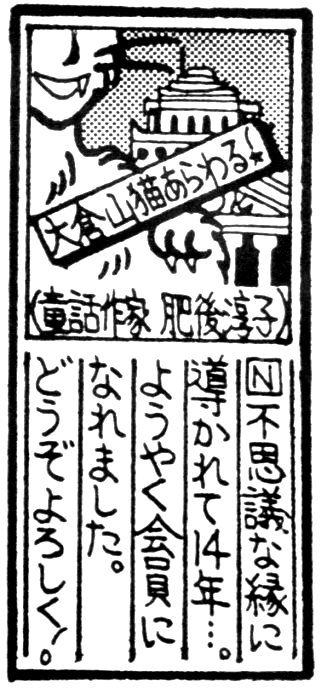 大倉山猫あらわる!
(童話作家 肥後淳子)
N不思議な縁に
導かれて14年…。
ようやく会員に
なれました。
どうぞよろしく!。